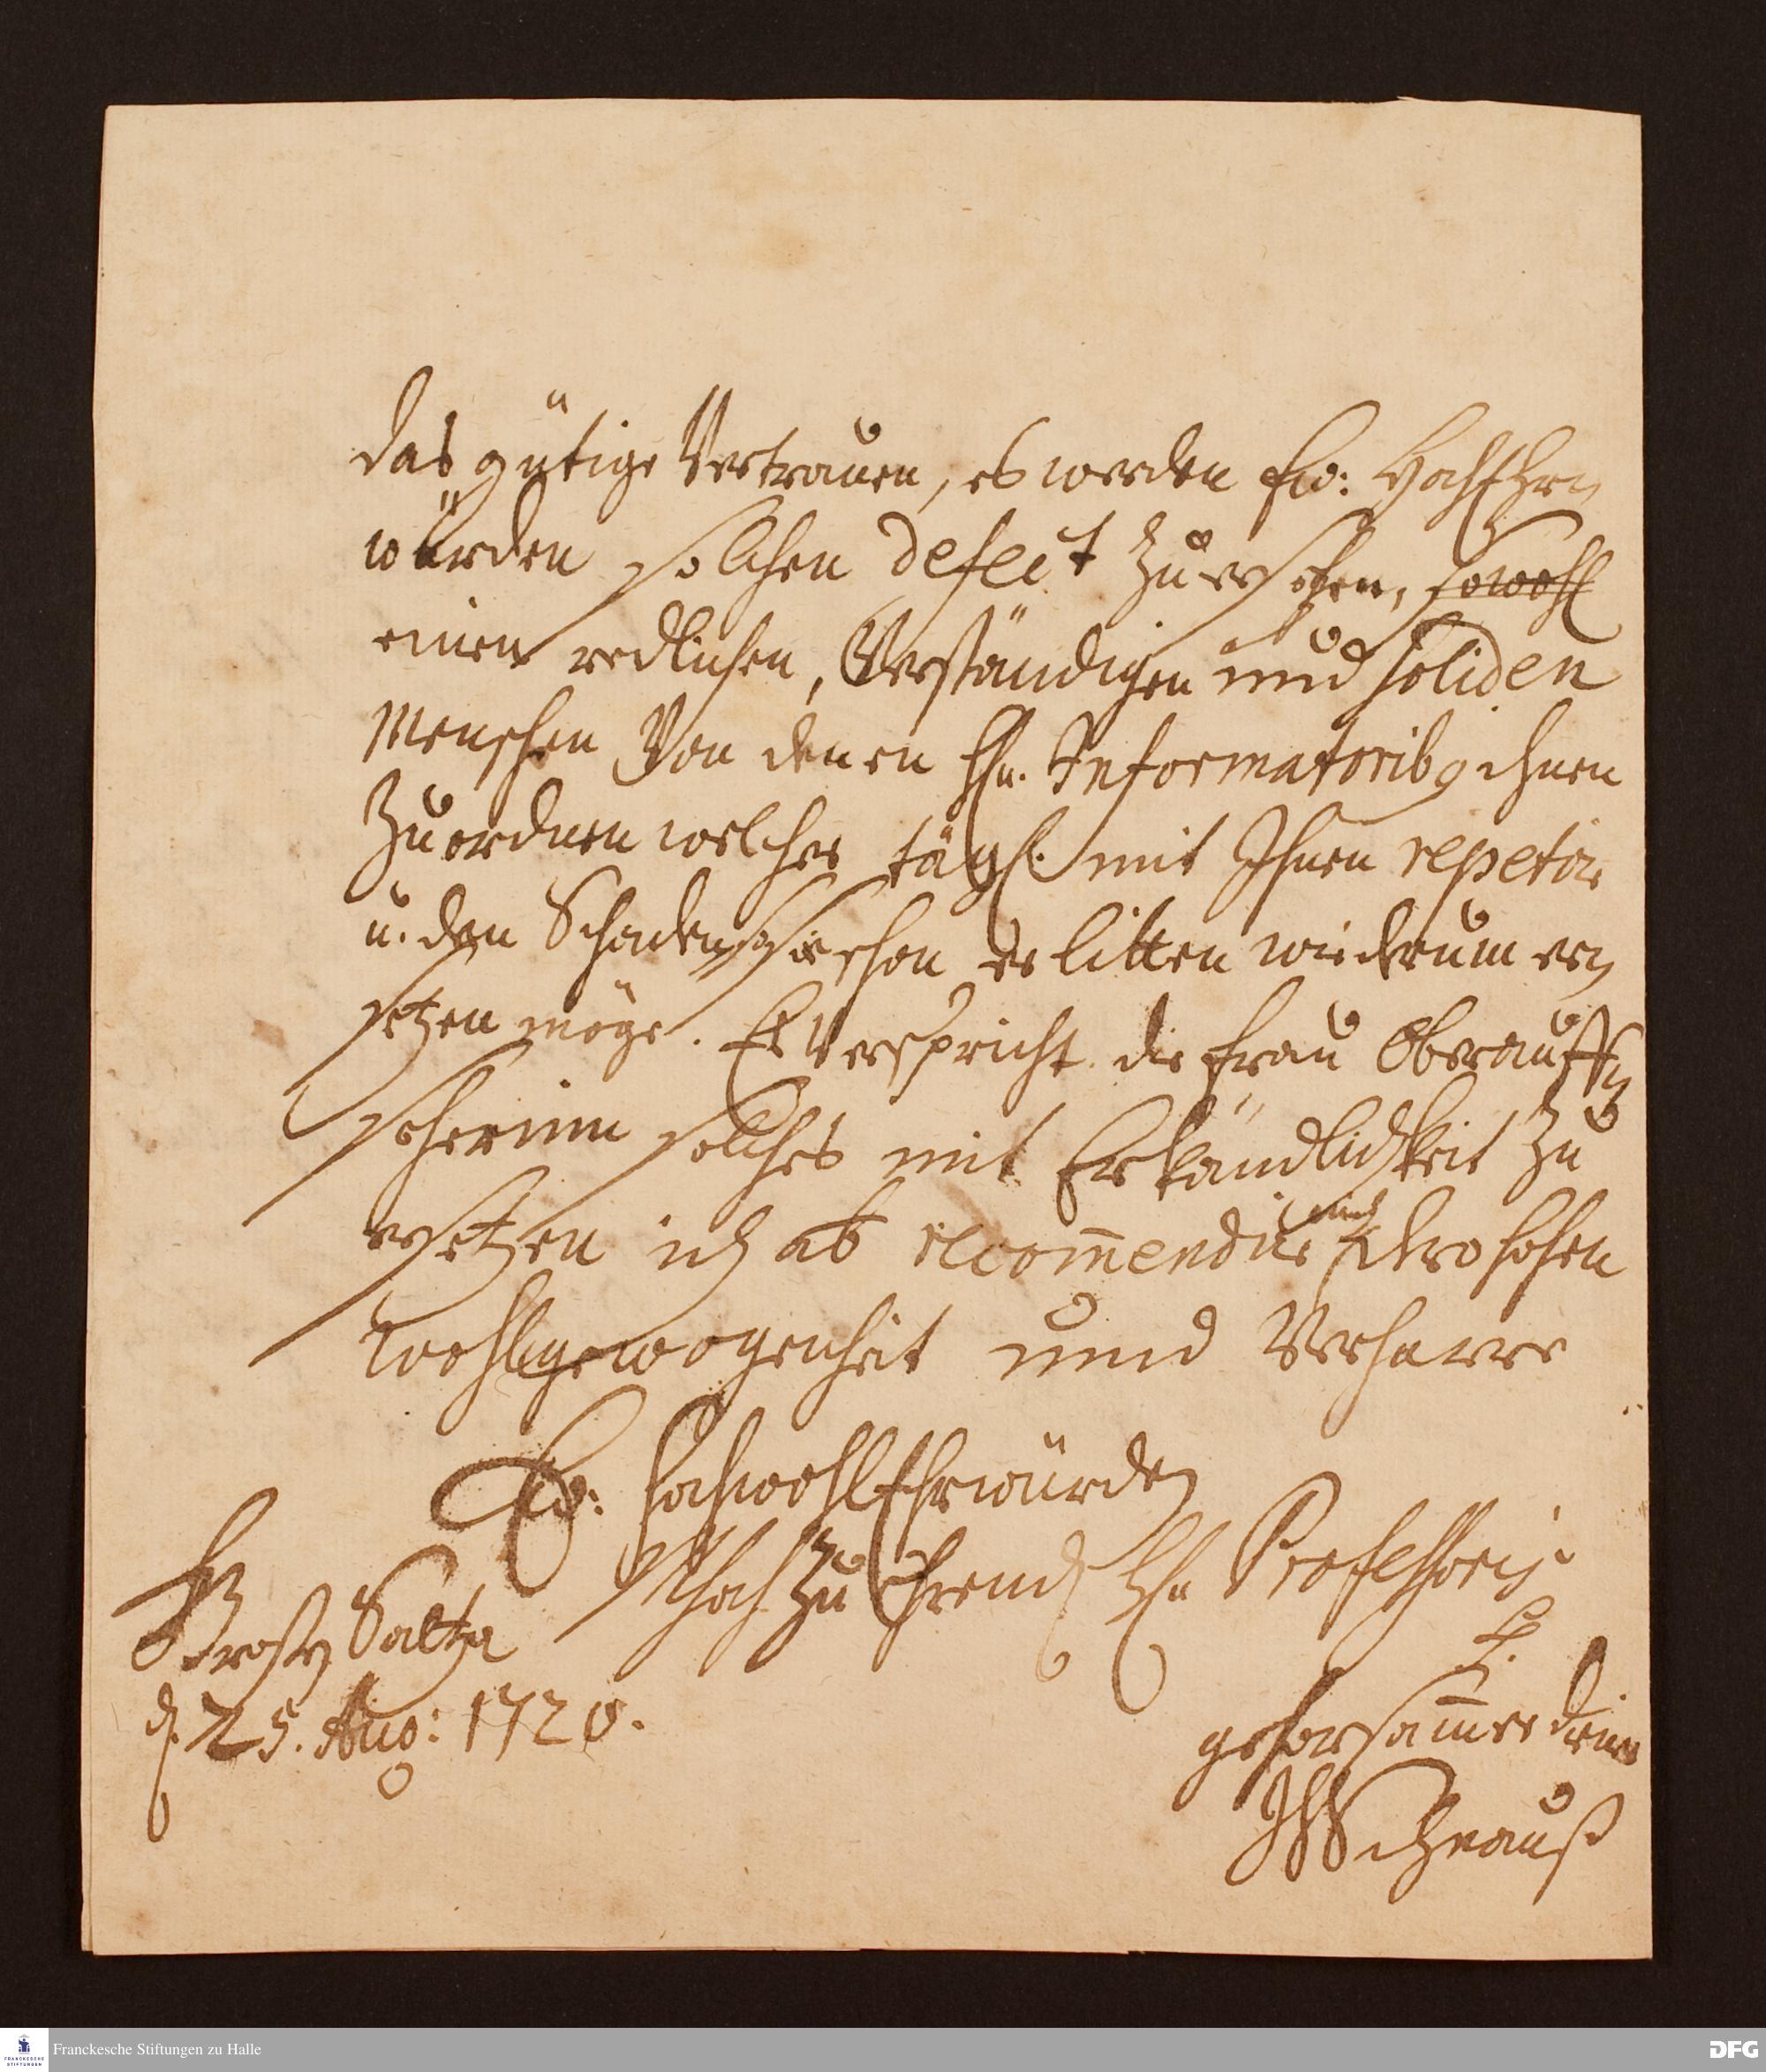 das gütige Vertrauen, es werden Ew: HochEhr¬
würden solchen defect zu ersetzen, sowohl
einen redlichen, Verständigen und soliden
Menschen Von denen HEn. Informatorib9 ihnen
Zu ordnen welcher tägl. mit Ihnen repetire
u. den Schaden so sie schon erlitten wiederum er¬
setzen möge. Es Verspricht die Frau Oberauff¬
seherinn solches mit Erkändlichkeit zu
ersetzen ich ab recom̄endire mich dero hohen
Wohlgewogenheit und Verharre
Ew: HochwohlEhrwürden
HochZuEhrend HEn Professoris
Groß Saltza
d. 25. Aug: 1720.
gehorsam̄er diener
Schnauß
Franckesche Stiftungen zu Halle
DFG